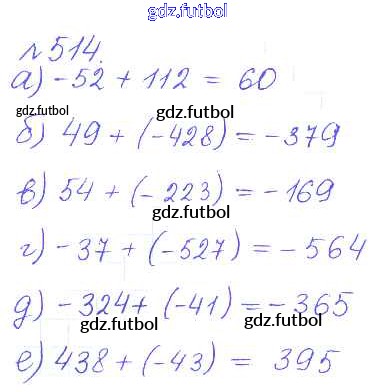 gdz.futbol
№514.
а) -52 + 112 = 60
gdz.futbol
gdz.futbol
б) 49 + (-428) = -379
в) 54 + (-223) = -169
gdz.futbol
г) -37 + (-527) = -564
gdz.futbol
д) -324 + (-41) = -365
gdz.futbol
gdz.futbol
е) 438 + (-43) = 395